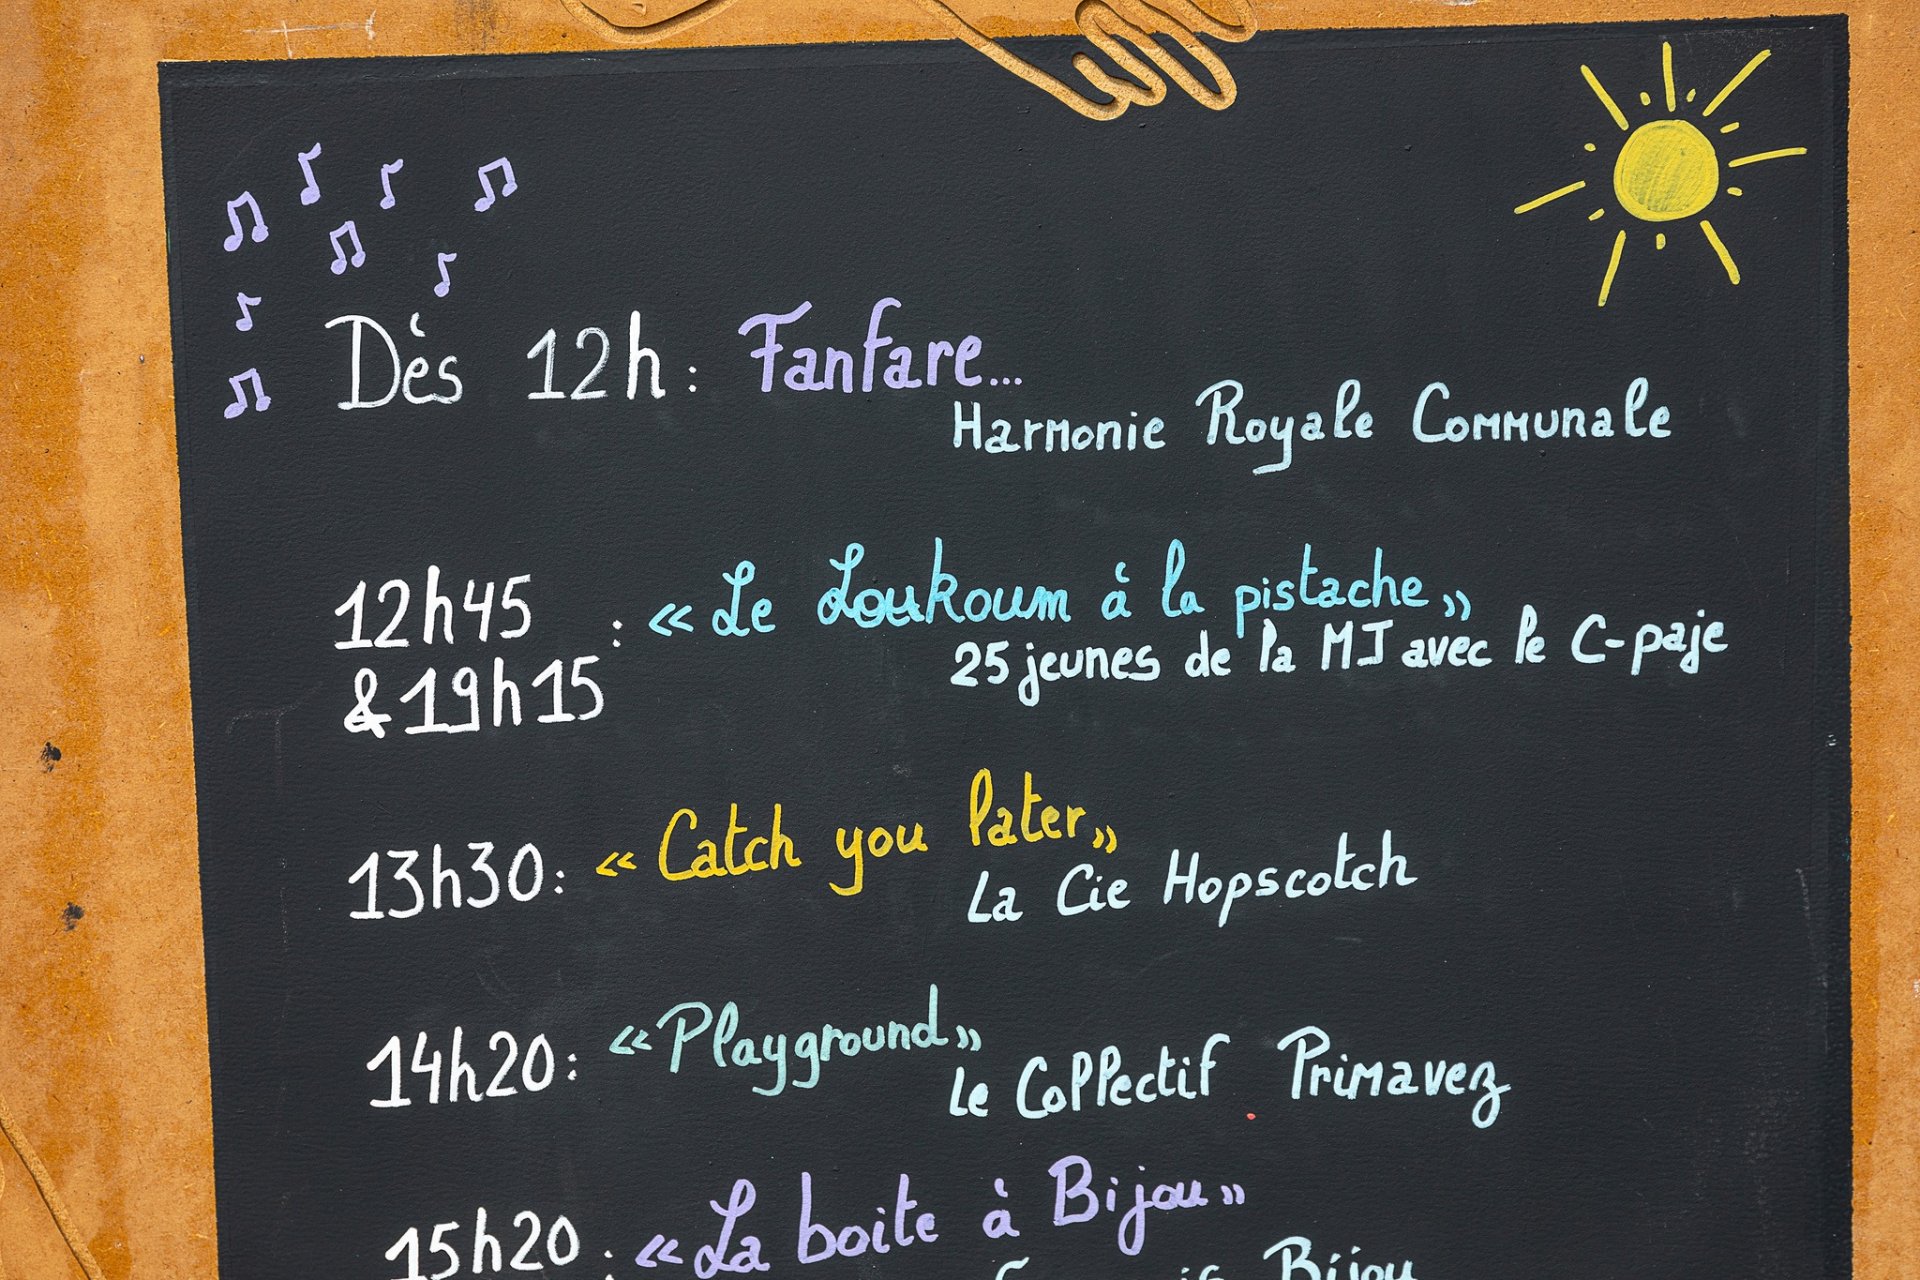 Dès 12h : Fanfare...
Harmonie Royale Communale
12h45
& 19h15 : « Le Loukoum à la pistache »
25 jeunes de la MJ avec le C-paje
13h30 : « Catch you later »
La Cie Hopscotch
14h20 : « Playground »
Le Collectif Primavez
15h20 : « La boite à Bijou »
Bijou